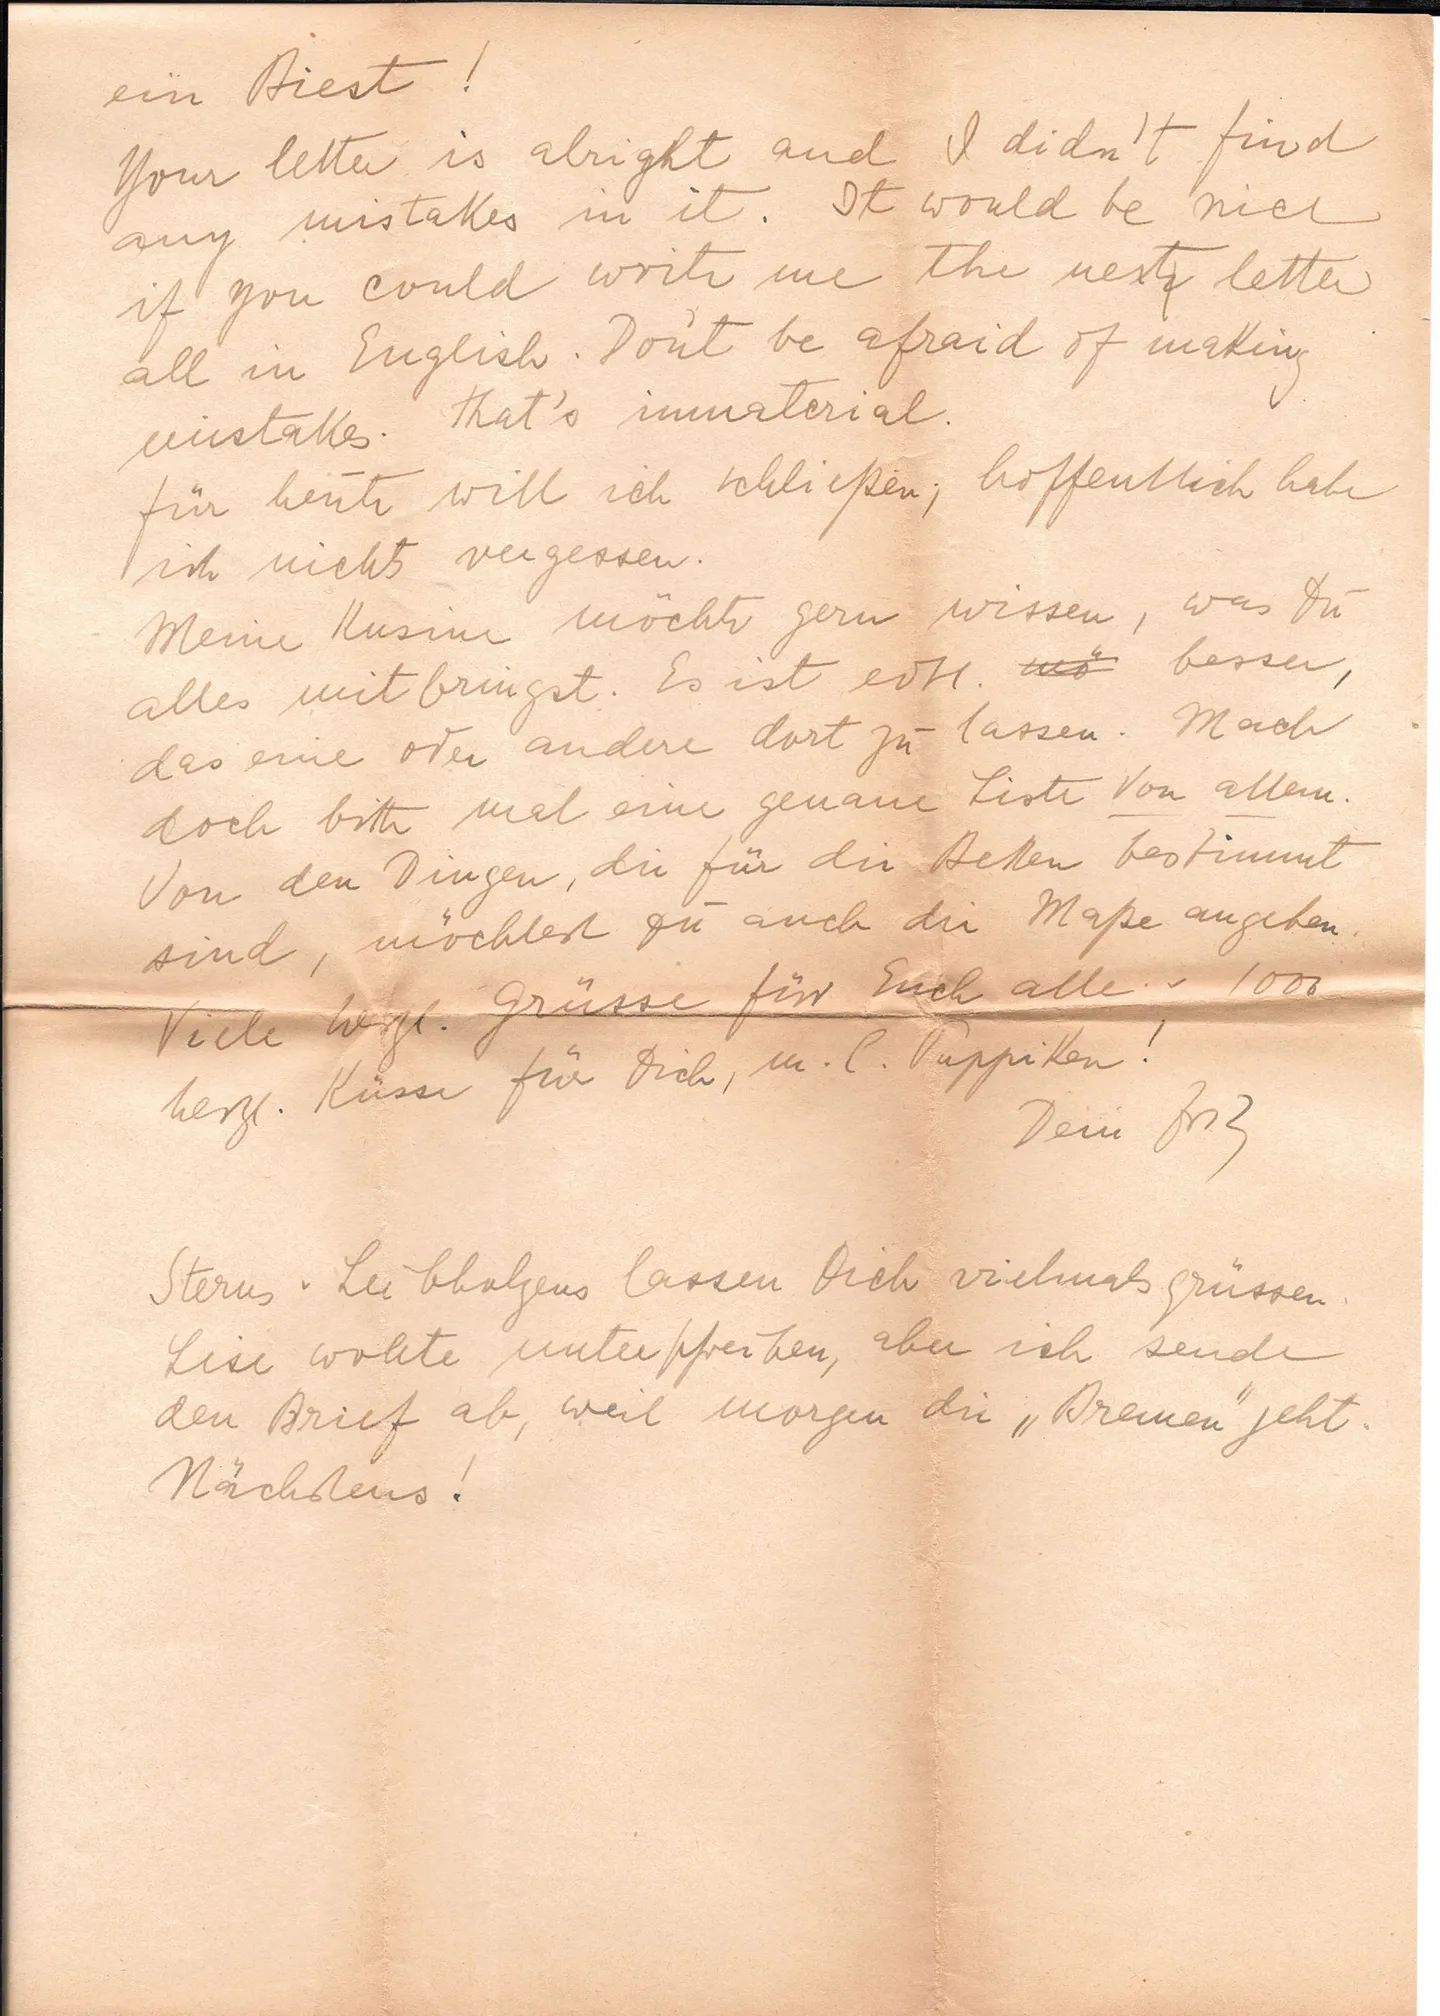 ein Biest!
Your letter is alright and I didn't find
any mistakes in it. It would be nice
if you could write me the next letter
all in English. Don't be afraid of making
mistakes. That's immaterial.
für heute will ich schließen; hoffentlich habe
ich nichts vergessen.
Meine Kusine möchte gern wissen, was Du
alles mitbringst. Es ist evtl. mö besser,
das eine oder andere dort zu lassen. Mach
doch bitte mal eine genaue Liste von allem.
Von den Dingen, die für die Betten bestimmt
sind, möchtest Du auch die Maße angeben.
Viele herzl. Grüsse für Euch alle - 1000
herzl. Küsse für Dich, m. l. Puppiken!
Dein
Sterns - Leibholzens lassen Dich vielmals grüssen.
Lise wollte unterschreiben, aber ich sende
den Brief ab, weil morgen die „Bremen" geht.
Nächstens!